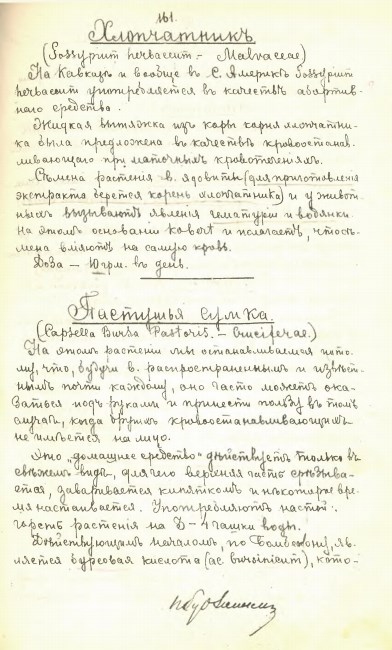 161.
Хлопчатникъ
(Gossypium herbaceum – Malvaceae)
На Кавказѣ и вообще въ С. Америкѣ Gossypium
herbaceum употребляется въ качествѣ абортив-
наго средства.
Жидкая вытяжка изъ коры корня хлопчатни-
ка была предложена въ качествѣ кровоостана-
вливающаго при маточныхъ кровотеченіяхъ.
Сѣмена растенія в. ядовиты (для приготовленія
экстракта берется корень хлопчатника) и у живот-
ныхъ вызываютъ явленія гематуріи и водянки.
На этомъ основаніи Kobert и полагаетъ, что сѣ-
мена вліяютъ на самую кровь.
Доза – 10 грм. въ день.
Пастушья сумка.
(Capsella Bursa Pastoris. – Cruciferae.)
На этомъ растеніи мы останавливаемся пото-
му, что, будучи в. распространеннымъ и извѣст-
нымъ почти каждому, оно часто можетъ ока-
заться подъ руками и принести пользу въ томъ
случаѣ, когда другихъ кровоостанавливающихъ
не имѣется на лицо.
Это „домашнее средство" дѣйствуетъ только въ
свѣжемъ видѣ, для чего верхняя часть срѣзыва-
ется, заваривается кипяткомъ и нѣкоторое вре-
мя настаивается. Употребляютъ настой
горсть растенія на 3–4 чашки воды.
Дѣйствующимъ началомъ, по Бомбелону, яв-
ляется бурсовая кислота (ac. bursinicum), кото-